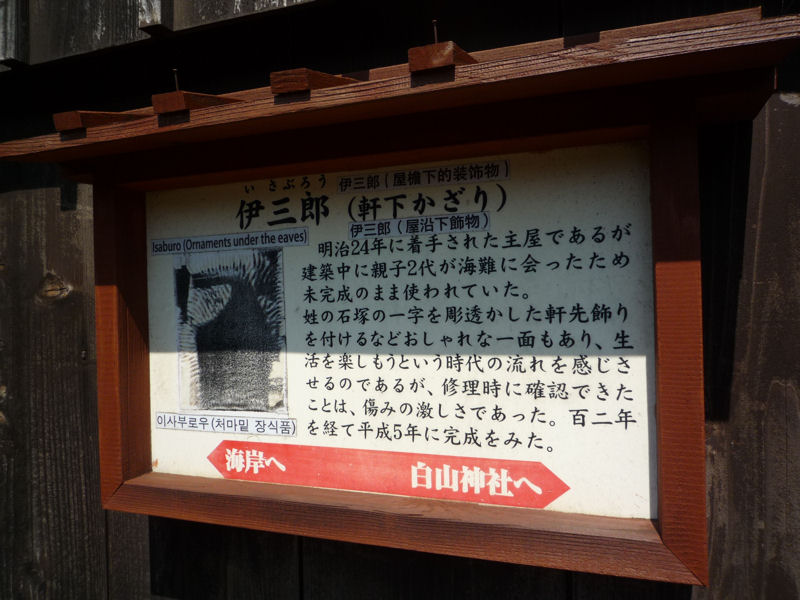 いさぶろう
伊三郎（屋檐下的装饰物）
伊三郎（軒下かざり）
伊三郎（屋沿下飾物）
Isaburo (Ornaments under the eaves)
明治24年に着手された主屋であるが
建築中に親子2代が海難に会ったため
未完成のまま使われていた。
姓の石塚の一字を彫透かした軒先飾り
を付けるなどおしゃれな一面もあり、生
活を楽しもうという時代の流れを感じさ
せるのであるが、修理時に確認できた
ことは、傷みの激しさであった。百二年
を経て平成5年に完成をみた。
이사부로우(처마밑 장식품)
海岸へ
白山神社へ